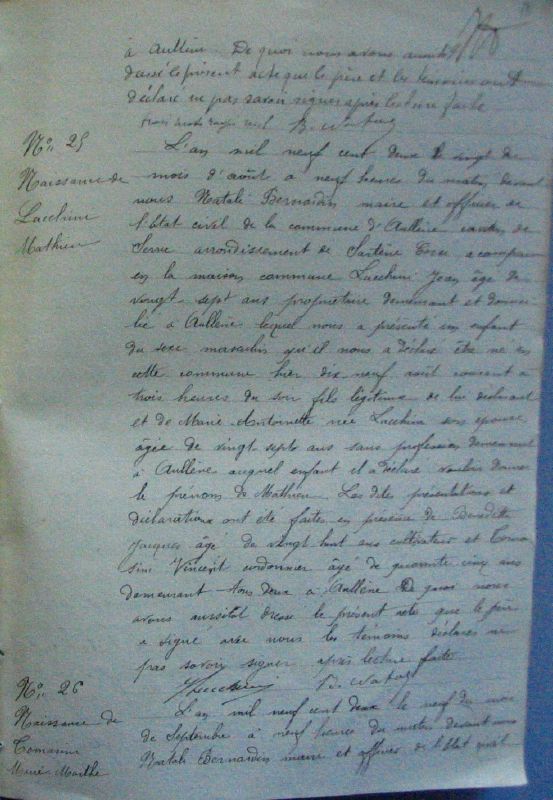 à Aullène. De quoi nous avons aussitôt
dressé le présent acte que le père et les témoins ont
déclaré ne pas savoir signer après lecture faite
B. Natali
No. 25
Naissance de
Lucchini
Mathieu
L'an mil neuf cent deux le vingt du
mois d'août à neuf heures du matin devant
nous Natali Bernardin maire et officier de
l'Etat civil de la commune d'Aullène canton de
Serra arrondissement de Sartène Corse a comparu
en la maison commune Lucchini Jean âgé de
vingt-sept ans propriétaire demeurant et domici-
lié à Aullène lequel nous a présenté un enfant
du sexe masculin qu'il nous a déclaré être né en
cette commune hier dix neuf août courant à
trois heures du soir fils légitime de lui déclarant
et de Marie Antoinette née Lucchini son épouse
âgée de vingt-sept ans sans profession demeurant
à Aullène auquel enfant il a déclaré vouloir donner
le prénom de Mathieu. Les dites présentations et
déclarations ont été faites en présence de Benedetti
Jacques âgé de vingt huit ans cultivateur et Toma-
sini Vincent cordonnier âgé de quarante cinq ans
demeurant tous deux à Aullène De quoi nous
avons aussitôt dressé le présent acte que le père
a signé avec nous les témoins déclaré ne
pas savoir signer après lecture faite
Lucchini B. Natali
No. 26
Naissance de
Marie-Marthe
L'an mil neuf cent deux le neuf du mois
de Septembre à neuf heures du matin devant nous
Natali Bernardin maire et officier de l'Etat civil